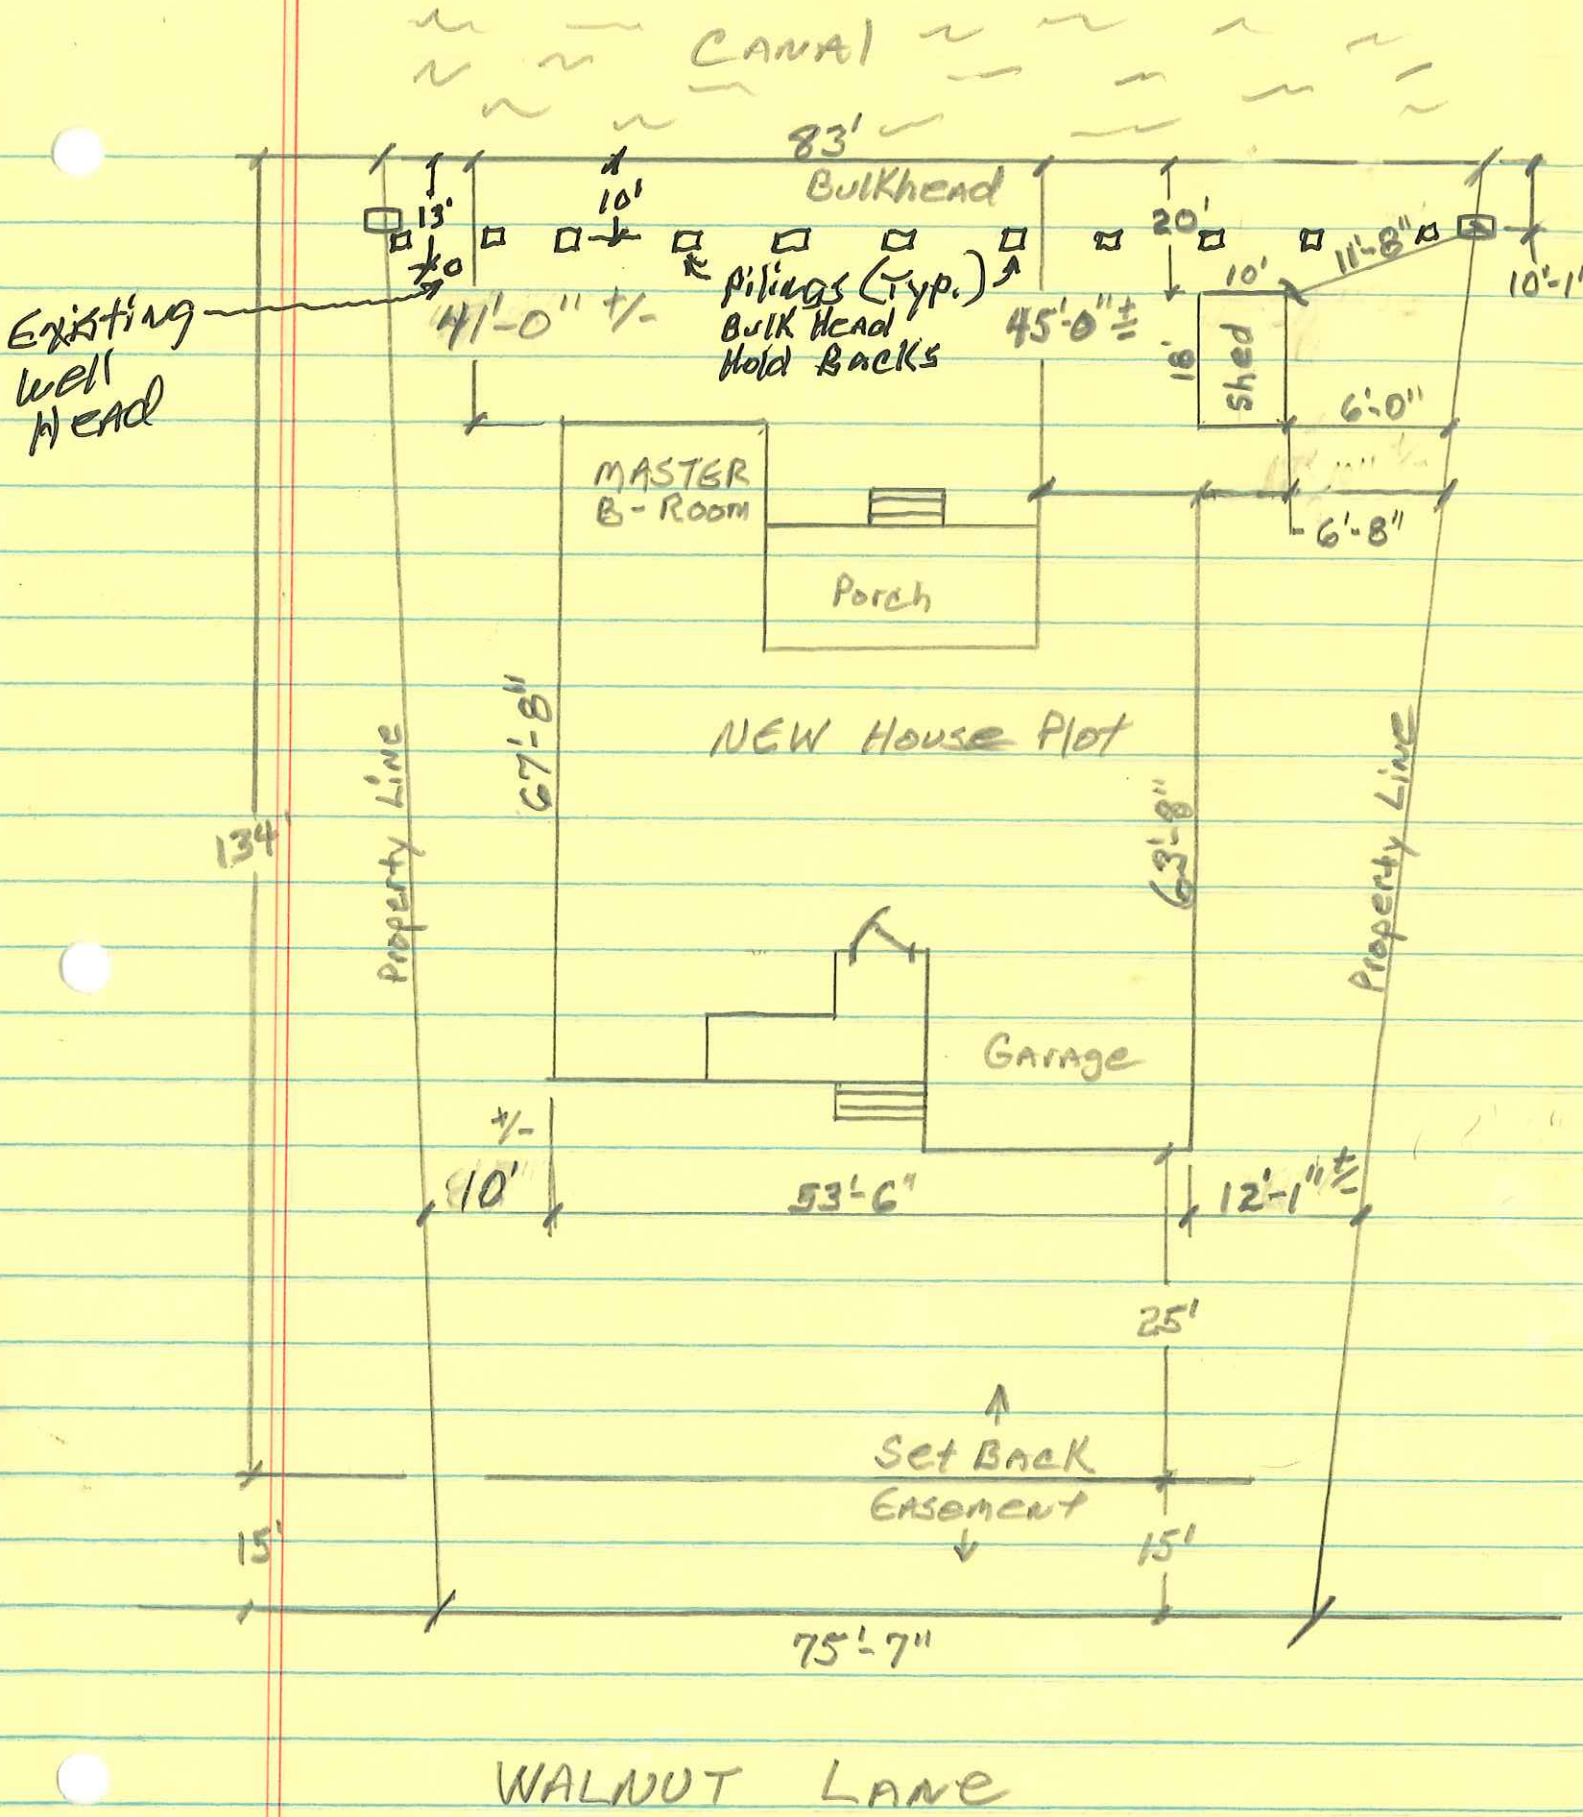 CANAl
83'
Bulkhead
13'
10'
20'
11'-8"
10'
10'-1"
Existing
Well
Head
41'-0" +/-
Pilings (Typ.)
Bulk Head
Hold Backs
45'-0" ±
18'
Shed
6'-0"
MASTER
B-Room
6'-8"
Porch
67'-8"
NEW House Plot
63'-8"
134'
Property Line
Property Line
Garage
+/-
10'
53'-6"
12'-1" ±
25'
Set BAcK
EAsemeNt
15'
15'
75'-7"
WALNUT LANe